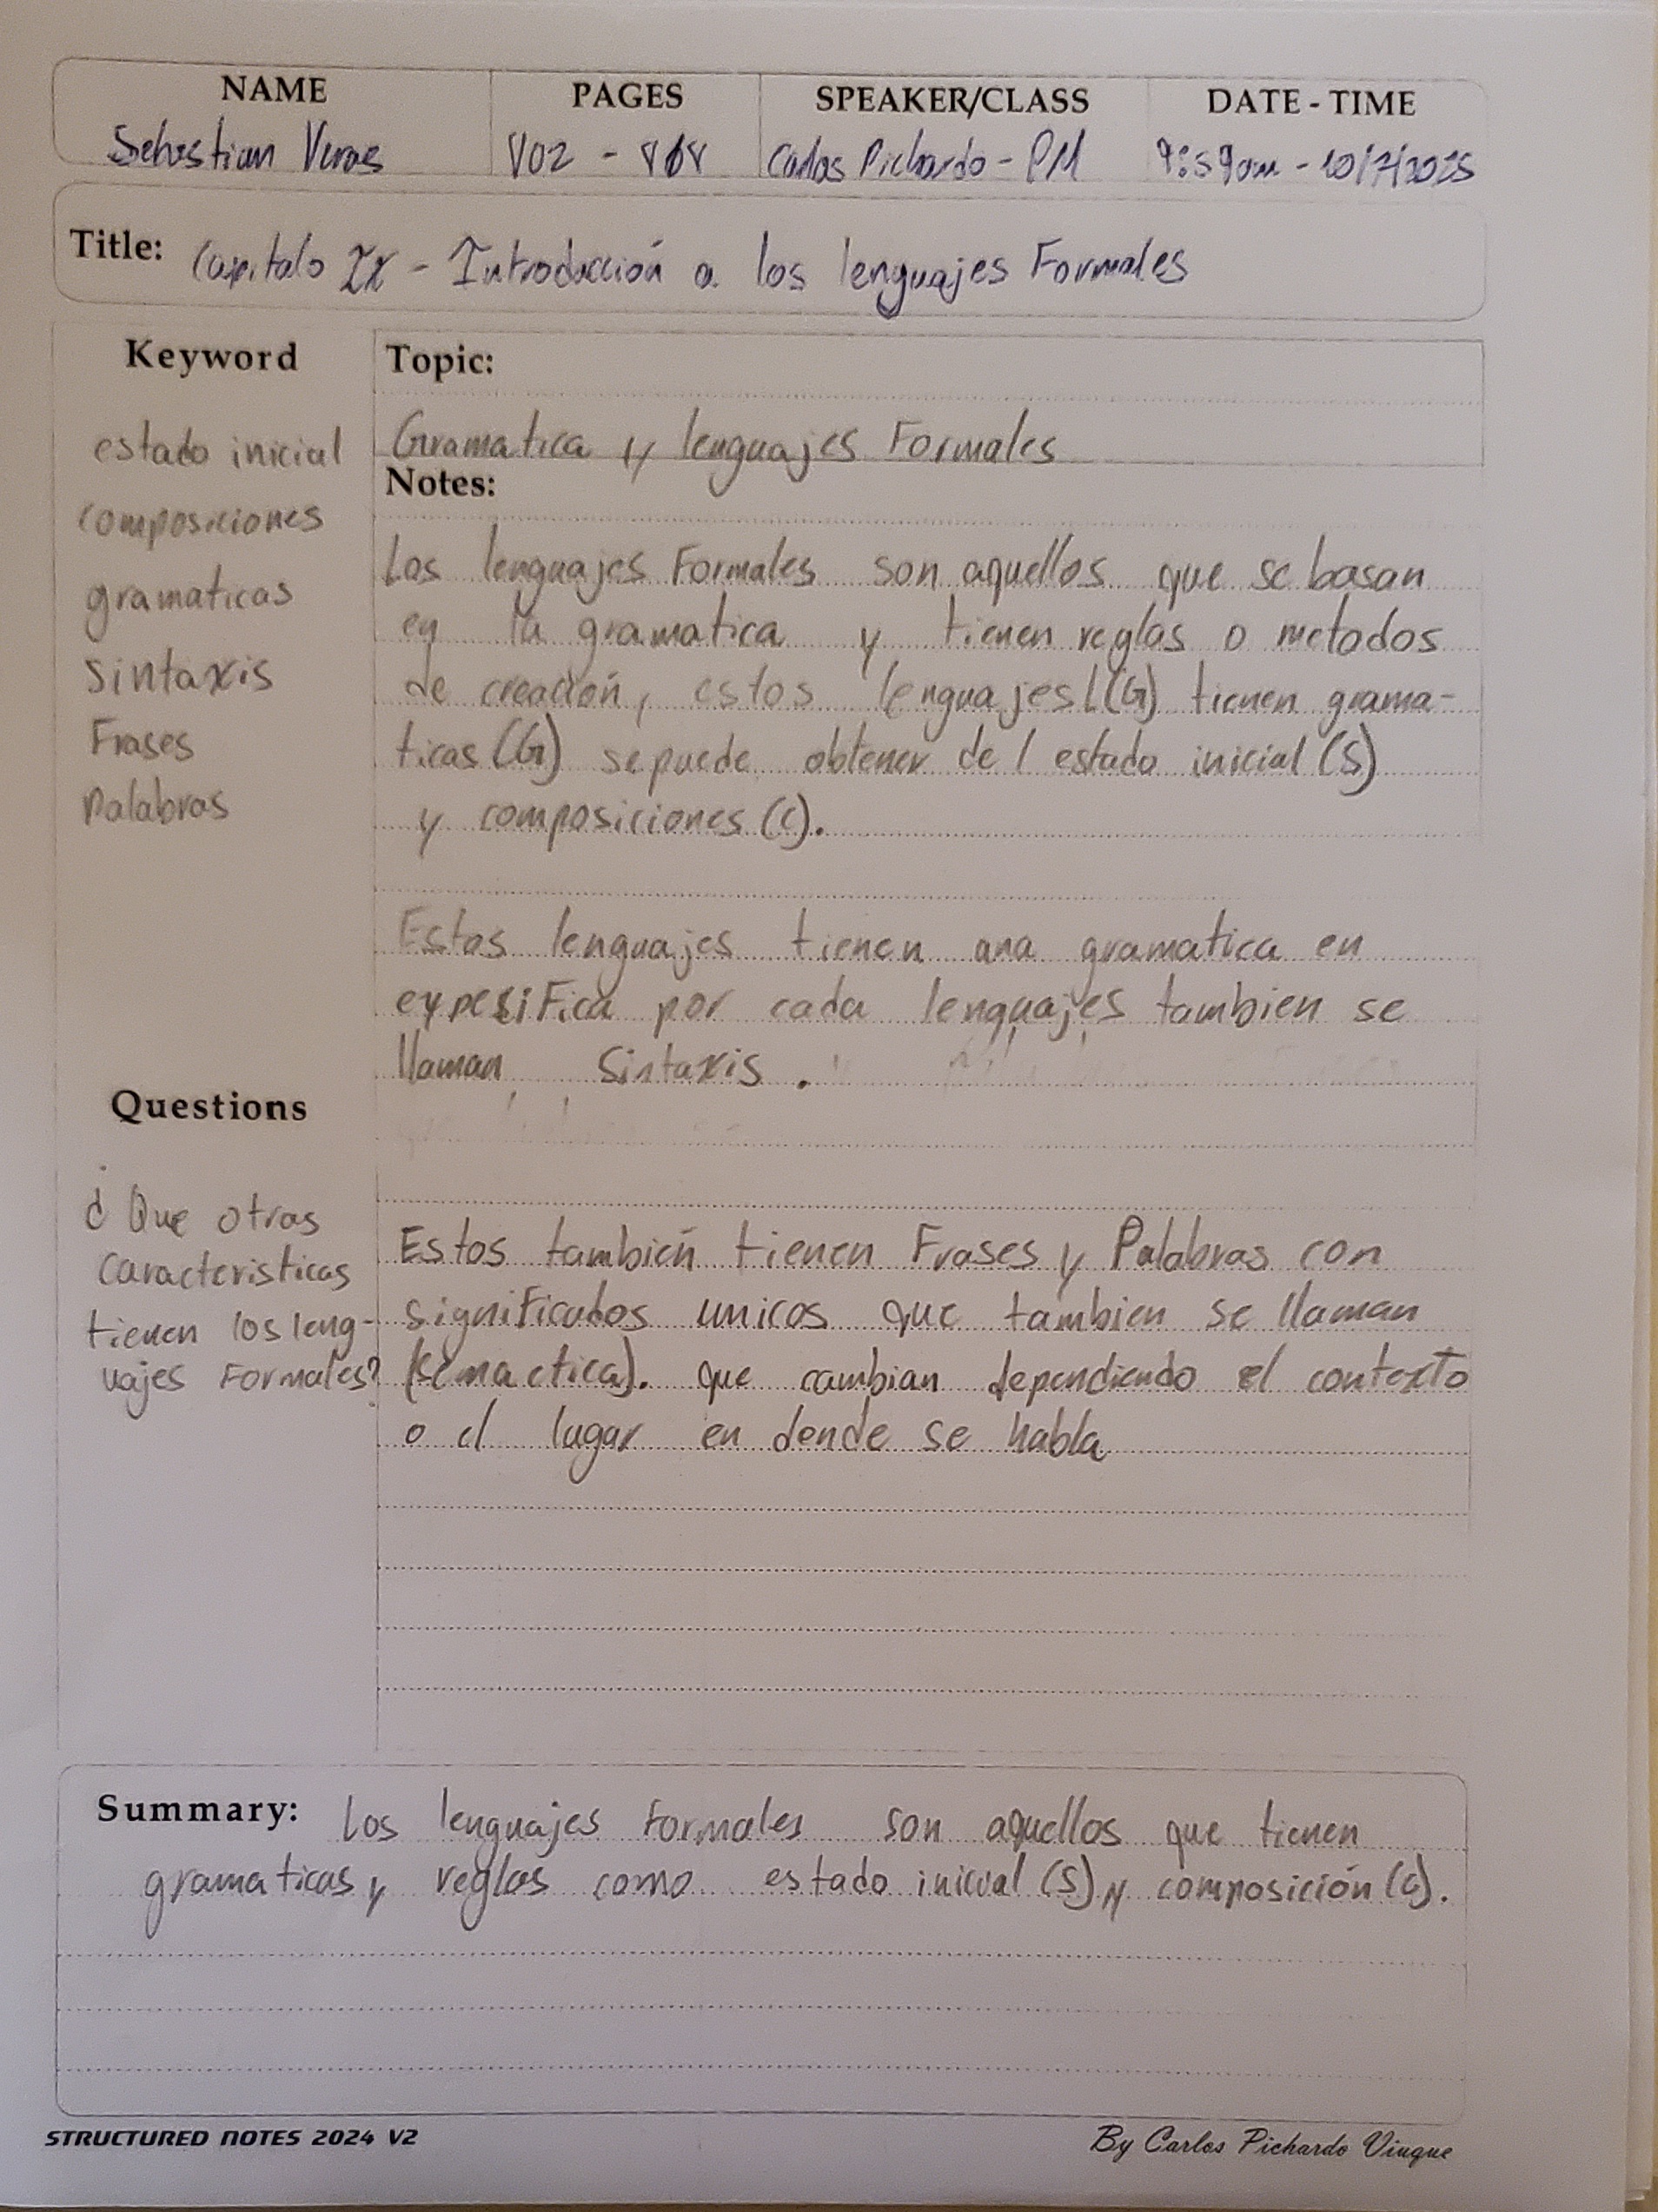 NAME PAGES SPEAKER/CLASS DATE - TIME
Sebastian Veras 802 - 808 Carlos Pichardo - PM 9:59am - 10/7/2025
Title: Capitalo IX - Introducción a los lenguajes Formales
Keyword
estado inicial
composiciones
gramaticas
sintaxis
Frases
Palabras
Topic:
Gramatica y lenguajes Formales
Notes:
Los lenguajes Formales son aquellos que se basan
en la gramatica y tienen reglas o metodos
de creación, estos lenguajes L(G) tienen grama-
ticas (G) se puede obtener del estado inicial (S)
y composiciones (C).
Estos lenguajes tienen una gramatica en
expesifica por cada lenguajes tambien se
llaman sintaxis.
Questions
¿Que otras
caracteristicas
tienen los leng-
uajes Formales?
Estos también tienen Frases y Palabras con
significados unicos que tambien se llaman
(semactica). que cambian dependiendo el contexto
o el lugar en donde se habla
Summary: Los lenguajes Formales son aquellos que tienen
gramaticas y reglas como estado inicial (S) y composición (C).
STRUCTURED NOTES 2024 V2
By Carlos Pichardo Viuque